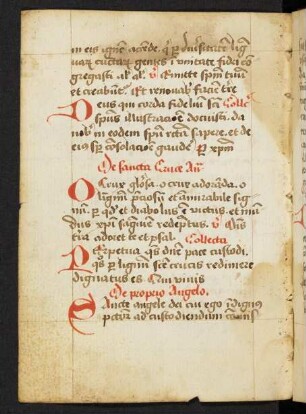 in eis ignem accende. q̇ p diu̇sitatem lig
cunctar̄ gentes ī vnitate fidei cōn
gregasti al' al'. v̄ Emitte spm̄ tuū
et creabunt̄. Et renouabis faciē tre
Deus qui corda fideliū sci Collc̄
spūs illustracōe docuisti. da
nob̄ in eodem spū recta sapere. et de
eius sp̄ consolacōe gaudē. P xpm̄
De sancta Cruce An̄
O Crux gl'osa. o crux adoranda. o
lignum p̄ciosū et am̄irabile sig
nū. p qd̄ et diabolus ē victus. et mun
dus xpi sanguīe redeptus. v̄
adoret te et psal. Collecta
Perpetua q̄s dn̄e pace custodi.
q̄s p lignū sce crucis redimere
dignatus es. Qui viuis
De proprio Angelo.
Sancte angele dei cui ego īdignus
pctōr ad custodiendum